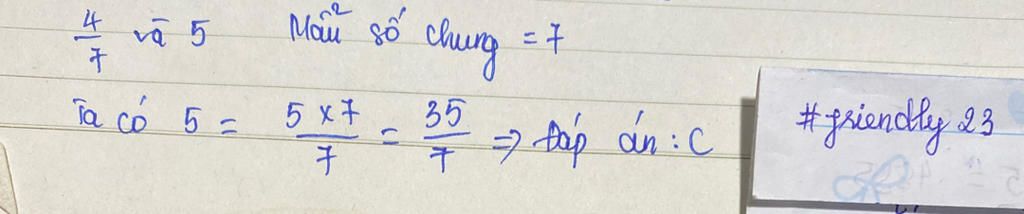 4/7 và 5 Mẫu số chung = 7
Ta có 5 = 5 x 7/7 = 35/7 => Đáp án : C
#friendly 23